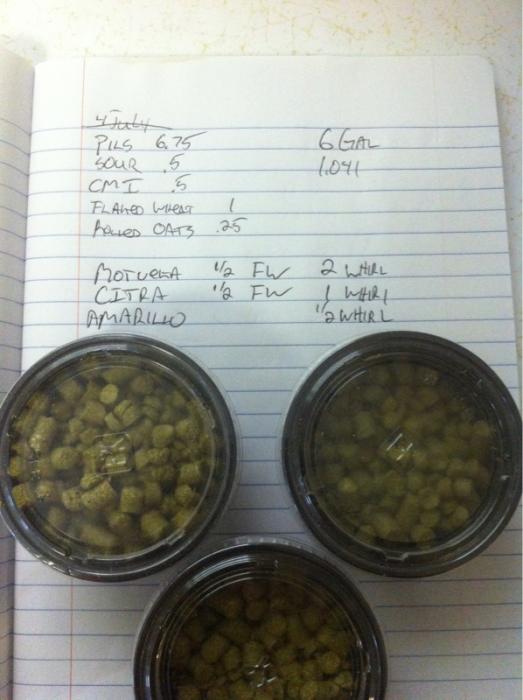 4 July
PILS 6.75 6 GAL
SOUR .5 1.041
CMI .5
FLAKED WHEAT 1
ROLLED OATS .25
MOTUEKA 1/2 FW 2 WHIRL
CITRA 1/2 FW 1 WHIRL
AMARILLO 1/2 WHIRL